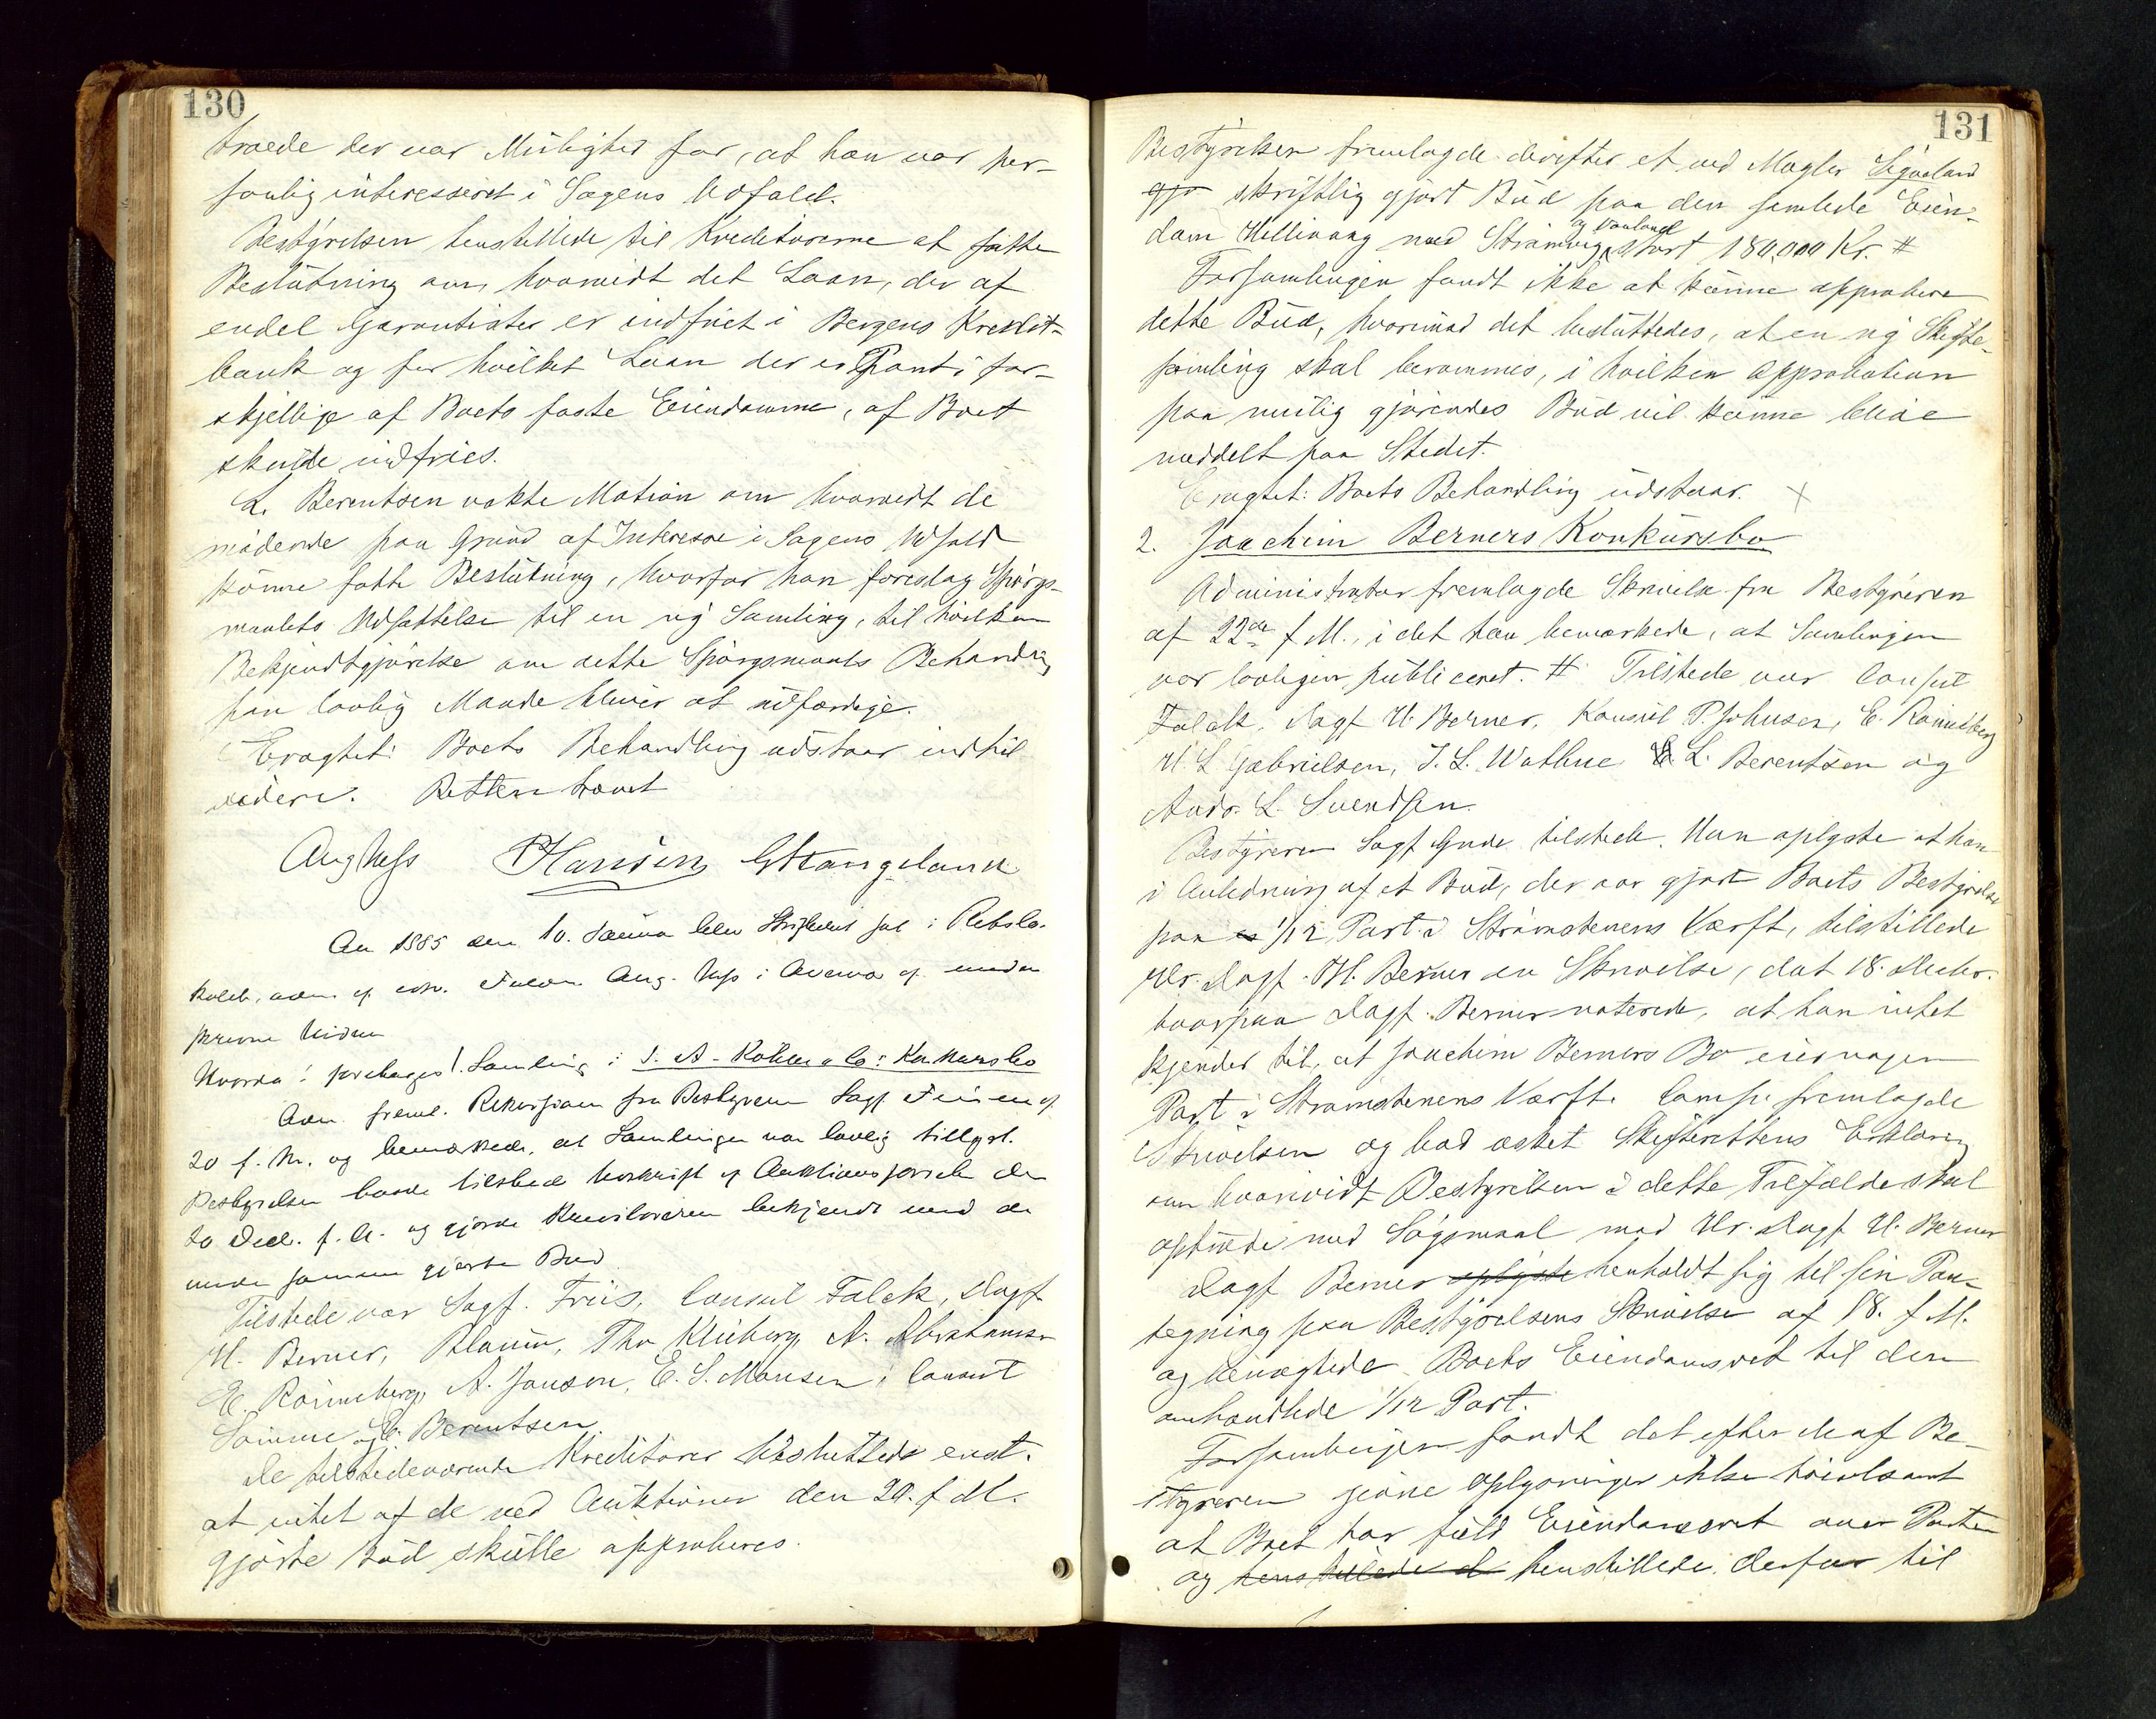 130
traede der var Mulighed for, at han var per-
sonlig interesseret i Sagens Udfald.
Bestyrelsen henstillede til Kreditorerne at fatte
Beslutning om, hvorvidt det Laan, der af
endel Garantister er indfriet i Bergens Kredit-
bank og for hvilket Laan der er Pant i for-
skjellige af Boets faste Eiendomme, af Boet
skulde indfries.
L. Berentsen vakte Motion om hvorvidt de
mødende paa Grund af Interesse i Sagens Udfald
kunne fatte Beslutning, hvorfor han foreslog Spørgs-
maalets Udsættelse til en ny Samling, til hvilken
Bekjendtgjørelse om dette Spørgsmaals Behandling
paa lovlig Maade bliver at udfærdige.
Eragtet: Boets Behandling udstaar indtil
videre. Retten hævet
Aug Ness Hansen G Stangeland
An 1885 den 10. Janua blev Skifteret sat i Retslo-
kalet, adm. af Aug. Ness i Overvær af under
skrevne Vidner
Hvorda: foretages 1. Samling i J. A. Køhler & Co: Konkursbo
Adm. freml. Rekvisition fra Bestyreren Sagf. af
20 f. M. og bemærkede, at Samlingen var lovlig tillyst.
Bestyrelsen havde tilstede Udskrift af Auktionsforretn den
20 Dec. f. A. og gjorde Kreditorerne bekjendt med de
under samme gjorte Bud.
Tilstede var Sagf. Friis, Consul Falck, Sagf
H. Berner, Blaum, Thv Kielberg, A. Abrahamsen
E. Rønneberg, A. Janson, E. S. Monsen, Consul
Sømme og L. Berentsen.
De tilstedeværende Kreditorer besluttede enst.
at intet af de ved Auktionen den 20. f M.
gjorte Bud skulle approberes.
131
Bestyrelsen fremlagde derefter et ved Mægler Sigvaland
gjo skriftlig gjort Bud paa den samlede Eien-
dom Hillevaag med Strømvig og Vauland stort 180,000 Kr. #
Forsamlingen fandt ikke at kunne approbere
dette Bud, hvorimod det besluttedes, at en ny Skifte-
samling skal berammes, i hvilken Approbation
paa mulig gjørendes Bud vil kunne blive
meddelt paa Stedet.
Eragtet: Boets Behandling udstaar. X
2. Joachim Berners Konkursbo
Administrator fremlagde Skrivelse fra Bestyreren
af 22de f M., i det han bemærkede, at Samlingen
var lovligen publiceret. # Tilstede var Consul
Falck, Sagf H. Berner, Konsul P. Johnsen, E. Rønneberg
H. L Gabrielsen, T. L. Wathne & L. Berentsen og
Andr. L. Svendsen.
Bestyreren Sagf Gude tilstede. Han oplyste at han
i Anledning af et Bud, der var gjort Boets Bestyrelse
paa 1/12 Part i Strømstenens Værft, tilstillede
Hr. Sagf. H. Berner en Skrivelse, dat 18. Decbr.
hvorpaa Sagf. Berner noterede, at han intet
kjender til, at Joachim Berners Bo eier nogen
Part i Strømstenens Værft. Comp. fremlagde
Skrivelsen og bad æsket Skifterettens Erklæring
om hvorvidt Bestyrelsen i dette Tilfælde skal
optræde med Søgsmaal mod Hr. Sagf H. Berner
Sagf Berner oplyste henholdt sig til sin Paa-
tegning paa Bestyrelsens Skrivelse af 18. f M.
og benægtede Boets Eiendomsret til den
omhandlede 1/12 Part.
Forsamlingen fandt det efter de af Be-
styreren givne Oplysninger ikke tvivlsomt
at Boet har fuld Eiendomsret over Parten
og henstillede d henstillede derfor til